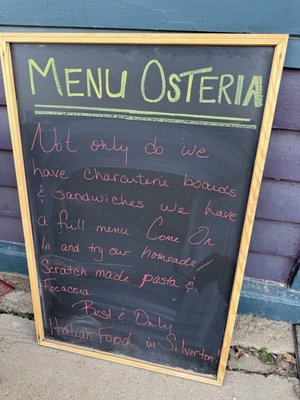 Menu Osteria
Not only do we
have charcuterie boards
& sandwiches we have
a full menu. Come On
In and try our homeade/
Scratch made pasta &
Focaccia.
Best & Only
Italian Food in Silverton!